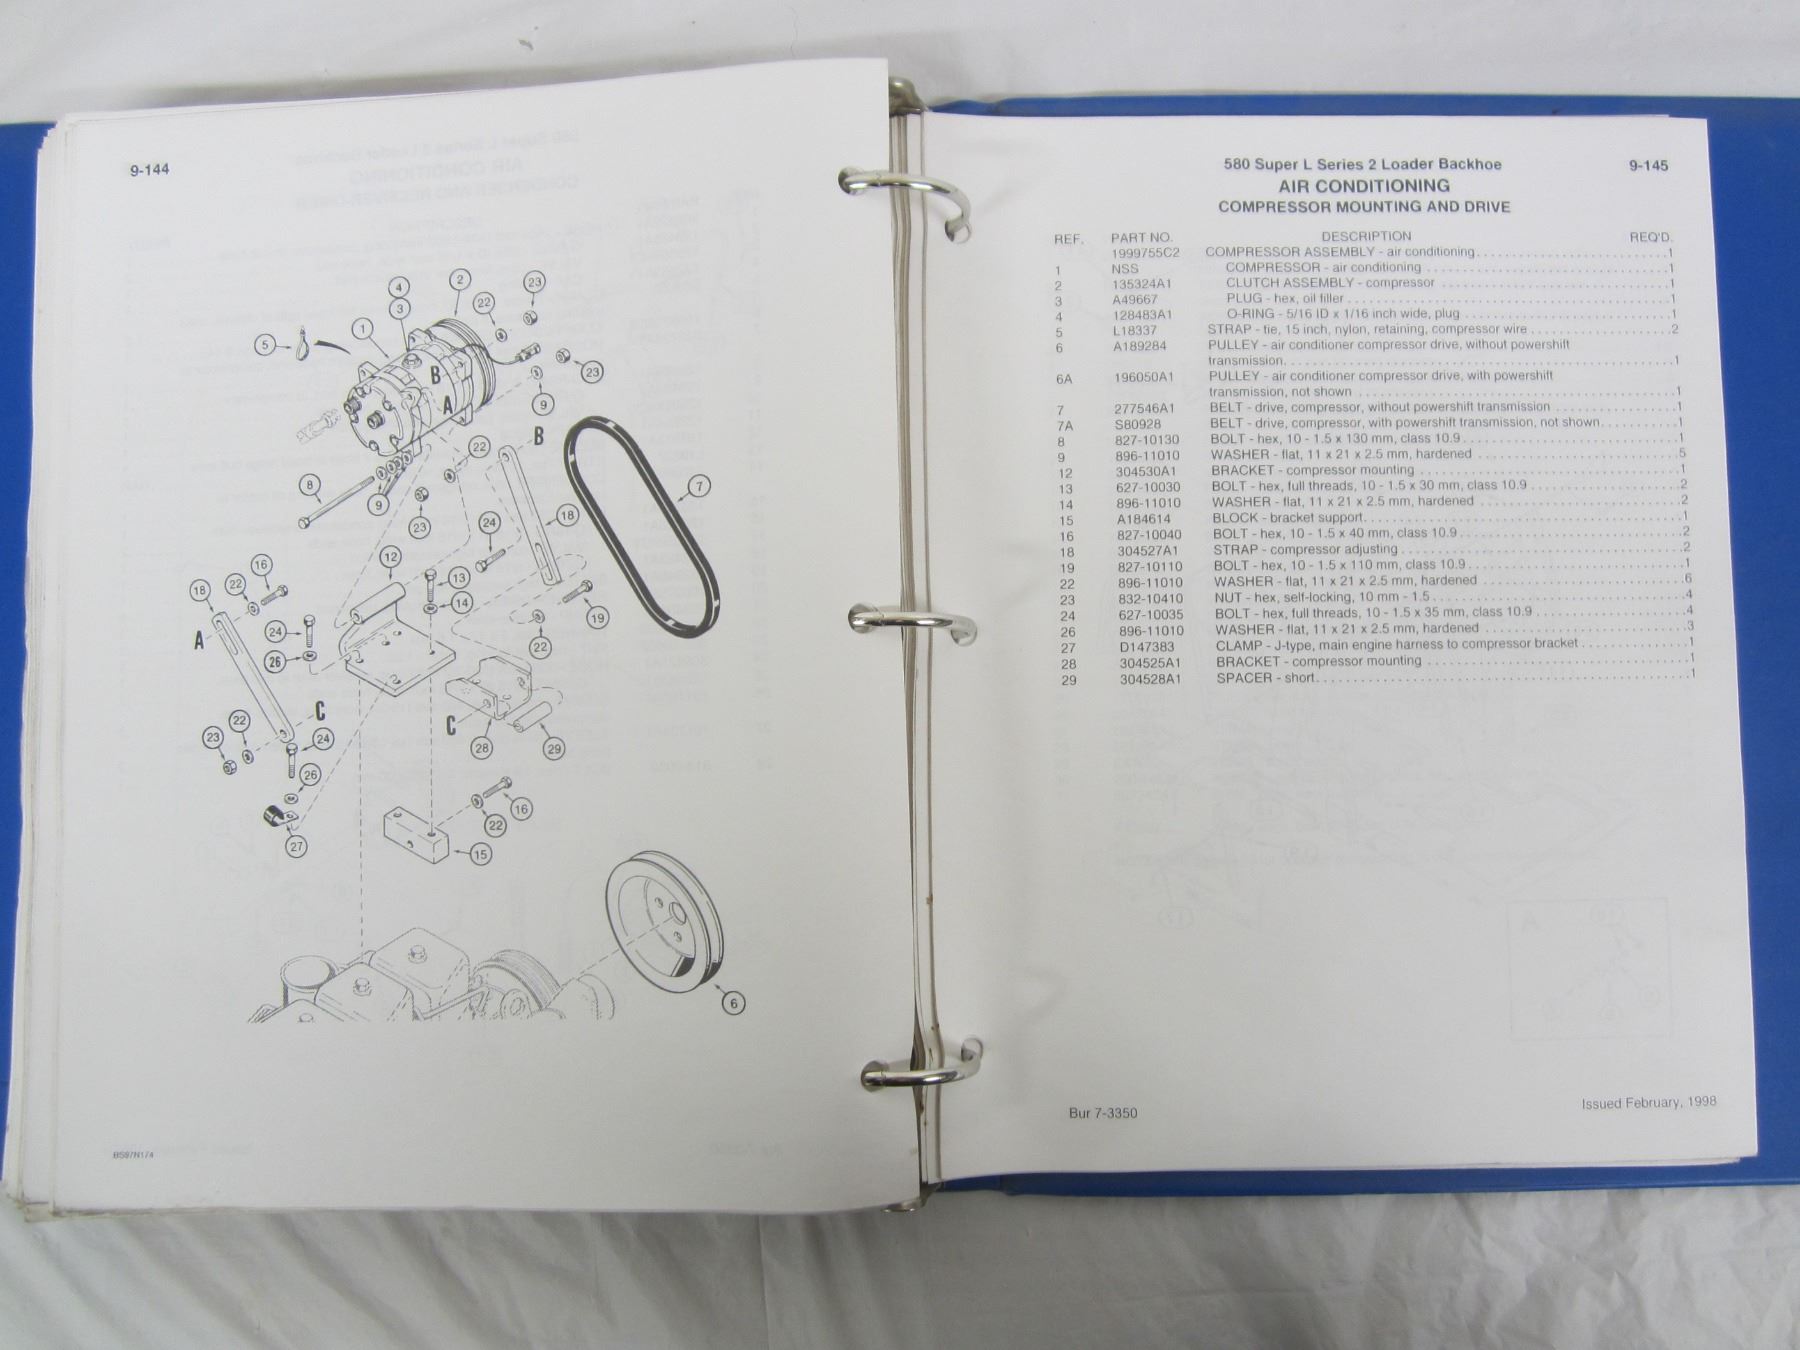 9-144
4
2
23
22
3
1
5
B
23
A
9
B
22
8
9
23
24
18
7
12
16
22
18
13
14
19
24
A
26
22
C
22
23
24
C
28
29
26
16
22
27
15
6
BS97N174
580 Super L Series 2 Loader Backhoe 9-145
AIR CONDITIONING
COMPRESSOR MOUNTING AND DRIVE
REF. PART NO. DESCRIPTION REQ'D.
1999755C2 COMPRESSOR ASSEMBLY - air conditioning 1
1 NSS COMPRESSOR - air conditioning 1
2 135324A1 CLUTCH ASSEMBLY - compressor 1
3 A49667 PLUG - hex, oil filler 1
4 128483A1 O-RING - 5/16 ID x 1/16 inch wide, plug 1
5 L18337 STRAP - tie, 15 inch, nylon, retaining, compressor wire 2
6 A189284 PULLEY - air conditioner compressor drive, without powershift
transmission 1
6A 196050A1 PULLEY - air conditioner compressor drive, with powershift
transmission, not shown 1
7 277546A1 BELT - drive, compressor, without powershift transmission 1
7A S80928 BELT - drive, compressor, with powershift transmission, not shown 1
8 827-10130 BOLT - hex, 10 - 1.5 x 130 mm, class 10.9 1
9 896-11010 WASHER - flat, 11 x 21 x 2.5 mm, hardened 5
12 304530A1 BRACKET - compressor mounting 1
13 627-10030 BOLT - hex, full threads, 10 - 1.5 x 30 mm, class 10.9 2
14 896-11010 WASHER - flat, 11 x 21 x 2.5 mm, hardened 2
15 A184614 BLOCK - bracket support 1
16 827-10040 BOLT - hex, 10 - 1.5 x 40 mm, class 10.9 2
18 304527A1 STRAP - compressor adjusting 2
19 827-10110 BOLT - hex, 10 - 1.5 x 110 mm, class 10.9 1
22 896-11010 WASHER - flat, 11 x 21 x 2.5 mm, hardened 6
23 832-10410 NUT - hex, self-locking, 10 mm - 1.5 4
24 627-10035 BOLT - hex, full threads, 10 - 1.5 x 35 mm, class 10.9 4
26 896-11010 WASHER - flat, 11 x 21 x 2.5 mm, hardened 3
27 D147383 CLAMP - J-type, main engine harness to compressor bracket 1
28 304525A1 BRACKET - compressor mounting 1
29 304528A1 SPACER - short 1
Bur 7-3350 Issued February, 1998